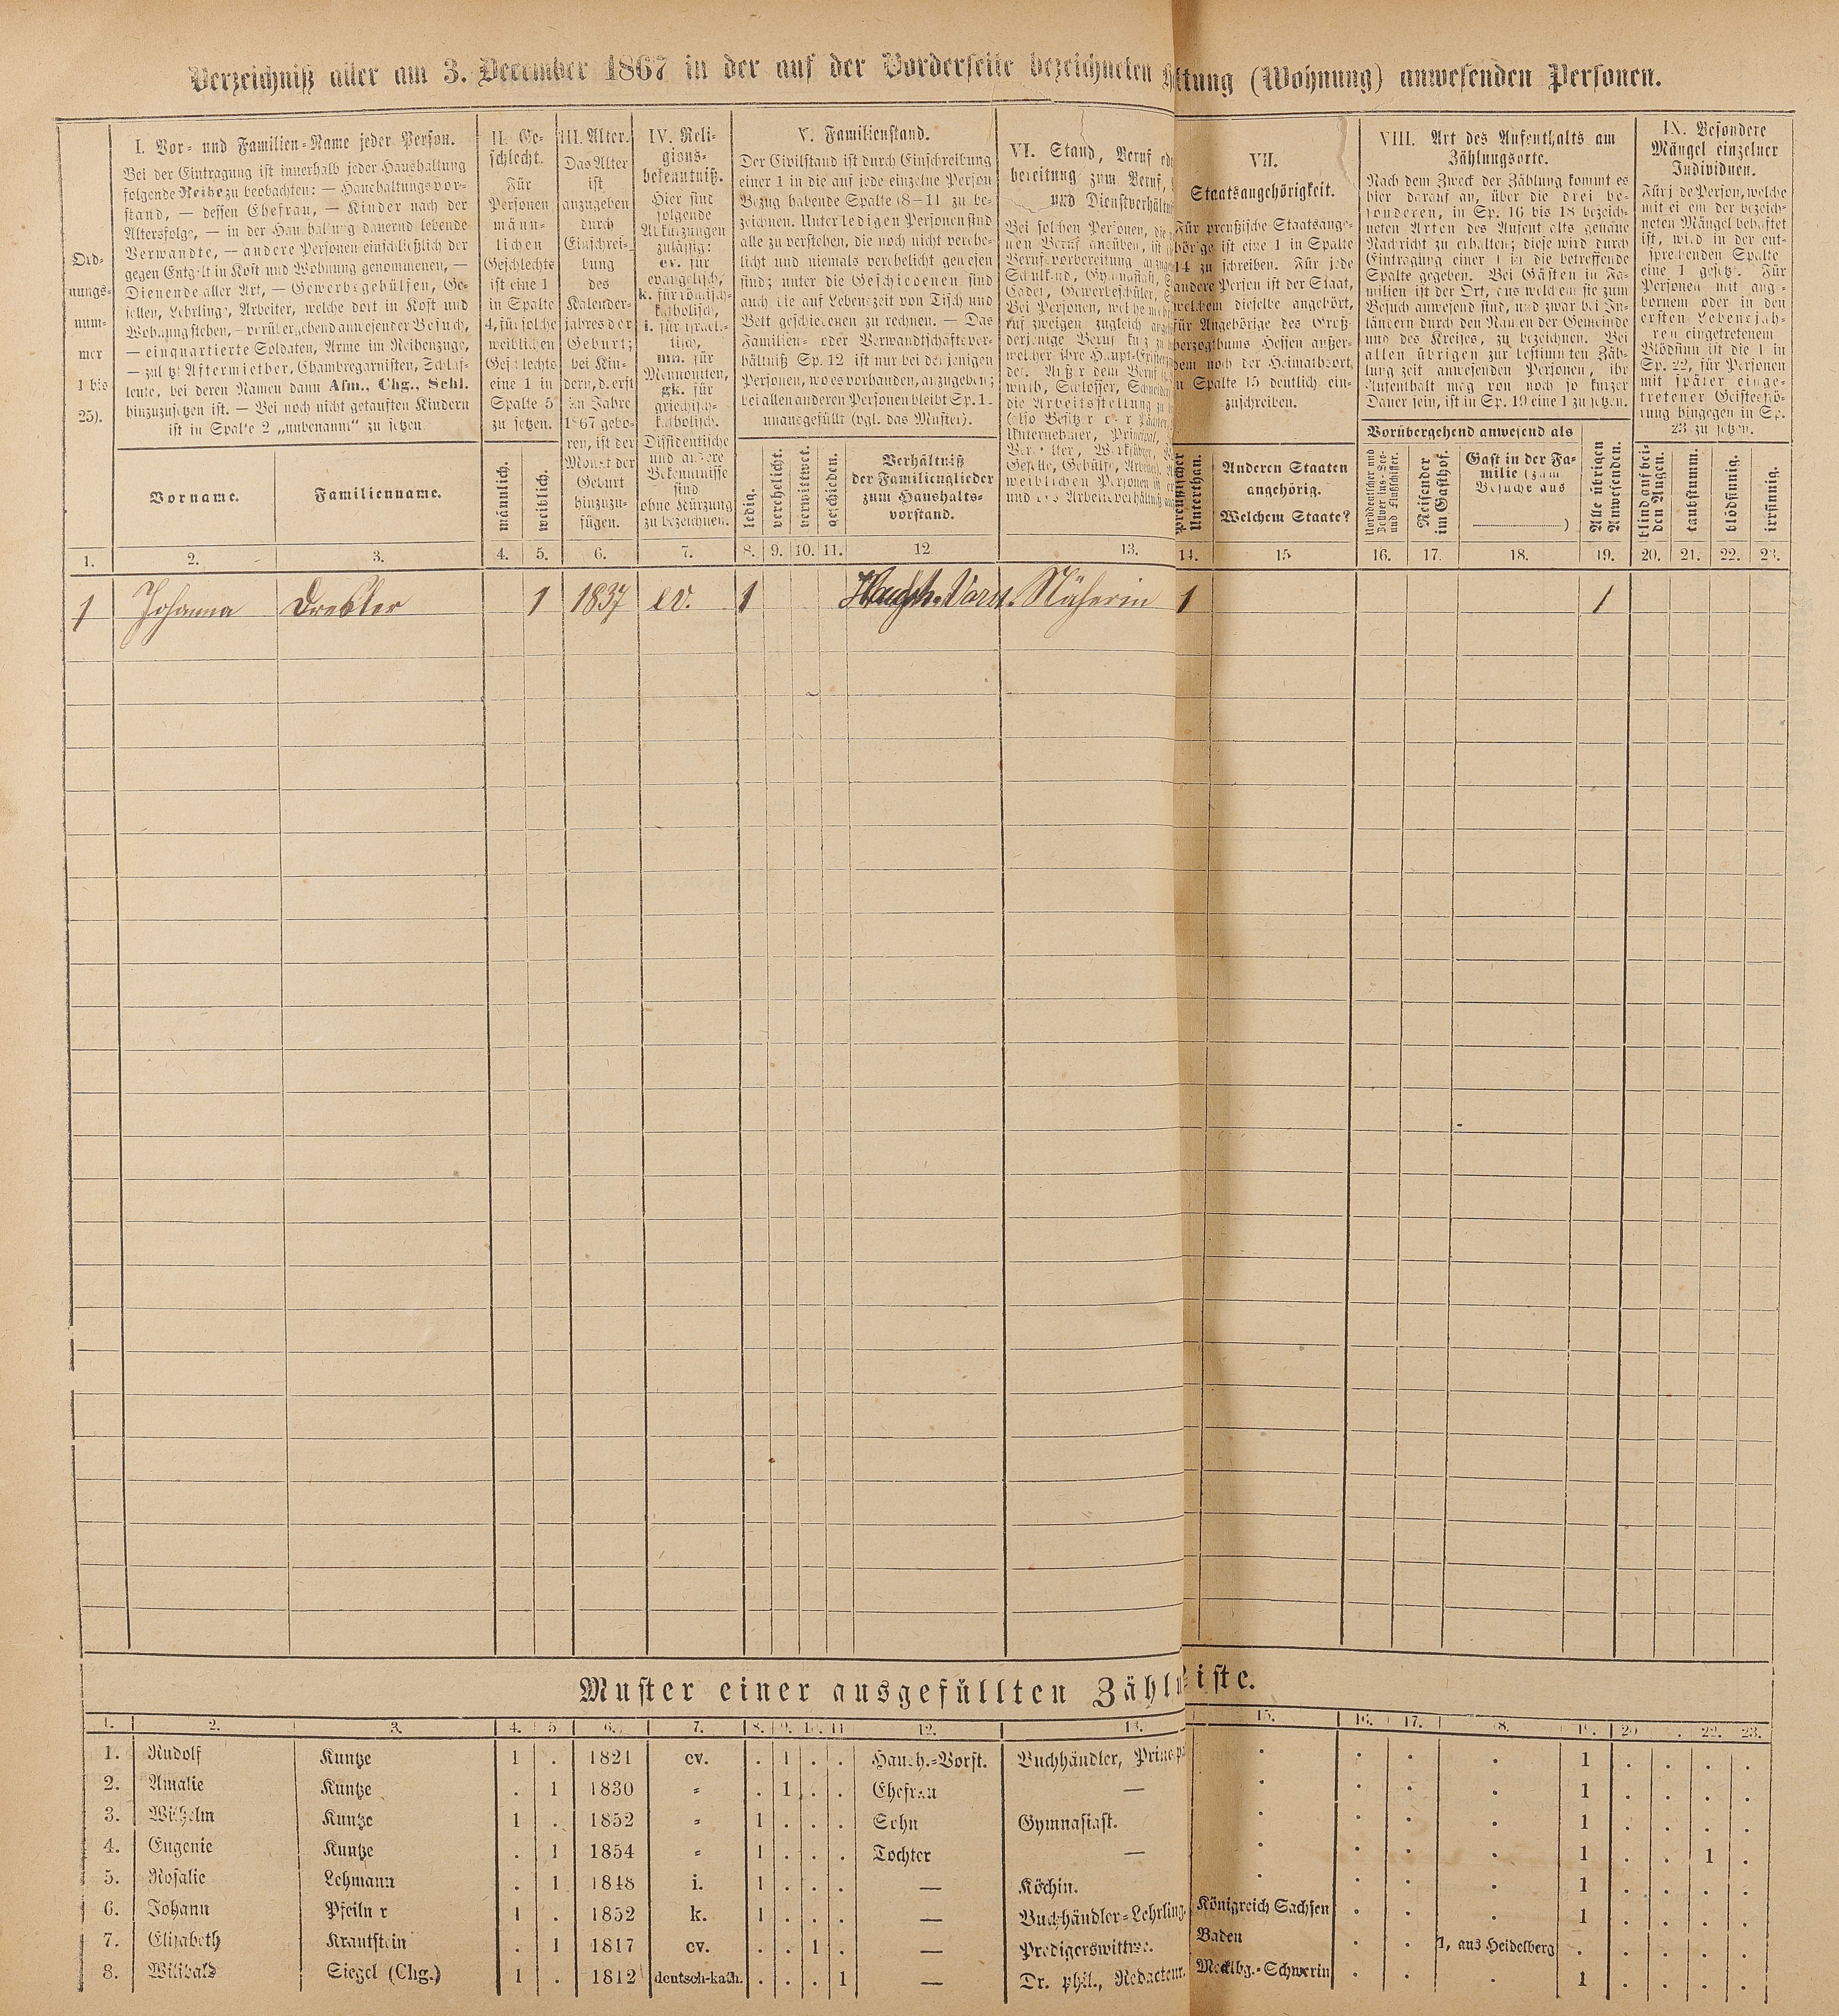 Verzeichniß aller am 3. December 1867 in der auf der Vorderseite bezeichneten
ltung (Wohnung) anwesenden Personen.
Ord-
nungs-
num-
mer
1 bis
25).
I. Vor- und Familien-Name jeder Person.
Bei der Eintragung ist innerhalb jeder Haushaltung
folgende Reihe zu beobachten: — Haushaltungsvor-
stand, — dessen Ehefrau, — Kinder nach der
Altersfolge, — in der Haushaltung dauernd lebende
Verwandte, — andere Personen einschließlich der
gegen Entgelt in Kost und Wohnung genommenen, —
Dienende aller Art, — Gewerbsgehülfen, Ge-
sellen, Lehrlinge, Arbeiter, welche dort in Kost und
Wohnung stehen, — vorübergehend anwesender Besuch,
— einquartierte Soldaten, Arme im Reihenzuge,
— zuletzt Aftermiether, Chambregarnisten, Schlaf-
leute, bei deren Namen dann Afm., Chg., Schl.
hinzuzusetzen ist. — Bei noch nicht getauften Kindern
ist in Spalte 2 „unbenannt“ zu setzen
Vorname.
Familienname.
II. Ge-
schlecht.
Für
Personen
männ-
lichen
Geschlechts
ist eine 1
in Spalte
4, für solche
weiblichen
Geschlechts
eine 1 in
Spalte 5
zu setzen.
männlich.
weiblich.
III. Alter.
Das Alter
ist
anzugeben
durch
Einschrei-
bung
des
Kalender-
jahres der
Geburt;
bei Kin-
dern, d. erst
im Jahre
1867 gebo-
ren, ist der
Monat der
Geburt
hinzuzu-
fügen.
IV. Reli-
gions-
bekenntniß.
Hier sind
folgende
Abkürzungen
zulässig:
ev. für
evangelisch,
k. für römisch-
katholisch,
i. für israeli-
tisch,
mn. für
Mennoniten,
gk. für
griechisch-
katholisch.
Dissidentische
und andere
Bekenntnisse
sind
ohne Kürzung
zu bezeichnen.
V. Familienstand.
Der Civilstand ist durch Einschreibung
einer 1 in die auf jede einzelne Person
Bezug habende Spalte (8–11 zu be-
zeichnen. Unter ledigen Personen sind
alle zu verstehen, die noch nicht verehe-
licht und niemals verehelicht gewesen
sind; unter die Geschiedenen sind
auch die auf Lebenszeit von Tisch und
Bett geschiedenen zu rechnen. — Das
Familien- oder Verwandtschaftsver-
hältniß Sp. 12 ist nur bei denjenigen
Personen, wo es vorhanden, anzugeben;
bei allen anderen Personen bleibt Sp. 1
unausgefüllt (vgl. das Muster).
ledig.
verehelicht.
verwittwet.
geschieden.
Verhältniß
der Familienglieder
zum Haushalts-
vorstand.
VI. Stand, Beruf od
bereitung zum Beruf,
und Dienstverhältn
Bei solchen Personen, die
nen Beruf ausüben, ist
Berufsvorbereitung anzuge
Schulkind, Gymnasiast,
Cadet, Gewerbeschüler,
VII.
Staatsangehörigkeit.
Für preußische Staatsange-
hörige ist eine 1 in Spalte
14 zu schreiben. Für jede
andere Person ist der Staat,
welchem dieselbe angehört,
für Angehörige des Groß-
herzogthums Hessen außer-
dem noch der Heimathsort,
in Spalte 15 deutlich ein-
zuschreiben.
preußischer
Unterthan.
Anderen Staaten
angehörig.
Welchem Staate?
VIII. Art des Aufenthalts am
Zählungsorte.
Nach dem Zweck der Zählung kommt es
hier darauf an, über die drei be-
sonderen, in Sp. 16 bis 18 bezeich-
neten Arten des Aufenthalts genaue
Nachricht zu erhalten; diese wird durch
Eintragung einer 1 in die betreffende
Spalte gegeben. Bei Gästen in Fa-
milien ist der Ort, aus welchem sie zum
Besuch anwesend sind, und zwar bei In-
ländern durch den Namen der Gemeinde
und des Kreises, zu bezeichnen. Bei
allen übrigen zur bestimmten Zäh-
lungszeit anwesenden Personen, ihr
Aufenthalt mag von noch so kurzer
Dauer sein, ist in Sp. 19 eine 1 zu setzen.
Vorübergehend anwesend als
Norddeutscher und
Zollver ins-See-
und Flußschiffer.
Reisender
im Gasthof.
Gast in der Fa-
milie (zum
Besuche aus
)
Alle übrigen
Anwesenden.
IX. Besondere
Mängel einzelner
Individuen.
Für jede Person, welche
mit einem der bezeich-
neten Mängel behaftet
ist, wird in der ent-
sprechenden Spalte
eine 1 gesetzt. Für
Personen mit ange-
bornem oder in den
ersten Lebensjah-
ren eingetretenem
Blödsinn ist die 1 in
Sp. 22, für Personen
mit später einge-
tretener Geistesstö-
rung hingegen in Sp.
23 zu setzen.
blind auf bei-
den Augen.
taubstumm.
blödsinnig.
irrsinnig.
1. 2. 3. 4. 5. 6. 7. 8. 9. 10. 11. 12 13. 14. 15 16. 17. 18. 19. 20. 21. 22. 23.
1 Johanna Drebler 1 1837 ev. 1 Haush.-Vorst. Näherin 1 1
Muster einer ausgefüllten Zähl
iste.
1. 2. 3. 4. 5 6. 7. 8. 9. 10. 11 12. 13. 15. 16. 17. 18. 19. 20 22. 23.
1. Rudolf Kuntze 1 . 1821 ev. . 1 . . Haush.-Vorst. Buchhändler, Princip . . . . 1 . . . .
2. Amalie Kuntze . 1 1830 " . 1 . . Ehefrau — . . . . 1 . . . .
3. Wilhelm Kuntze 1 . 1852 " 1 . . . Sohn Gymnasiast. . . . . 1 . . . .
4. Eugenie Kuntze . 1 1854 " 1 . . . Tochter — . . . . 1 . . 1 .
5. Rosalie Lehmann . 1 1848 i. 1 . . . — Köchin. . . . . 1 . . . .
6. Johann Pfeilner 1 . 1852 k. 1 . . . — Buchhändler-Lehrling. Königreich Sachsen . . . 1 . . . .
7. Elisabeth Krautstein . 1 1817 ev. . . 1 . — Predigerswittwe. Baden . . 1, aus Heidelberg . . . . .
8. Wilibald Siegel (Chg.) 1 . 1812 deutsch-kath. . . . 1 — Dr. phil., Redacteur. Mecklbg.-Schwerin . . . 1 . . . .